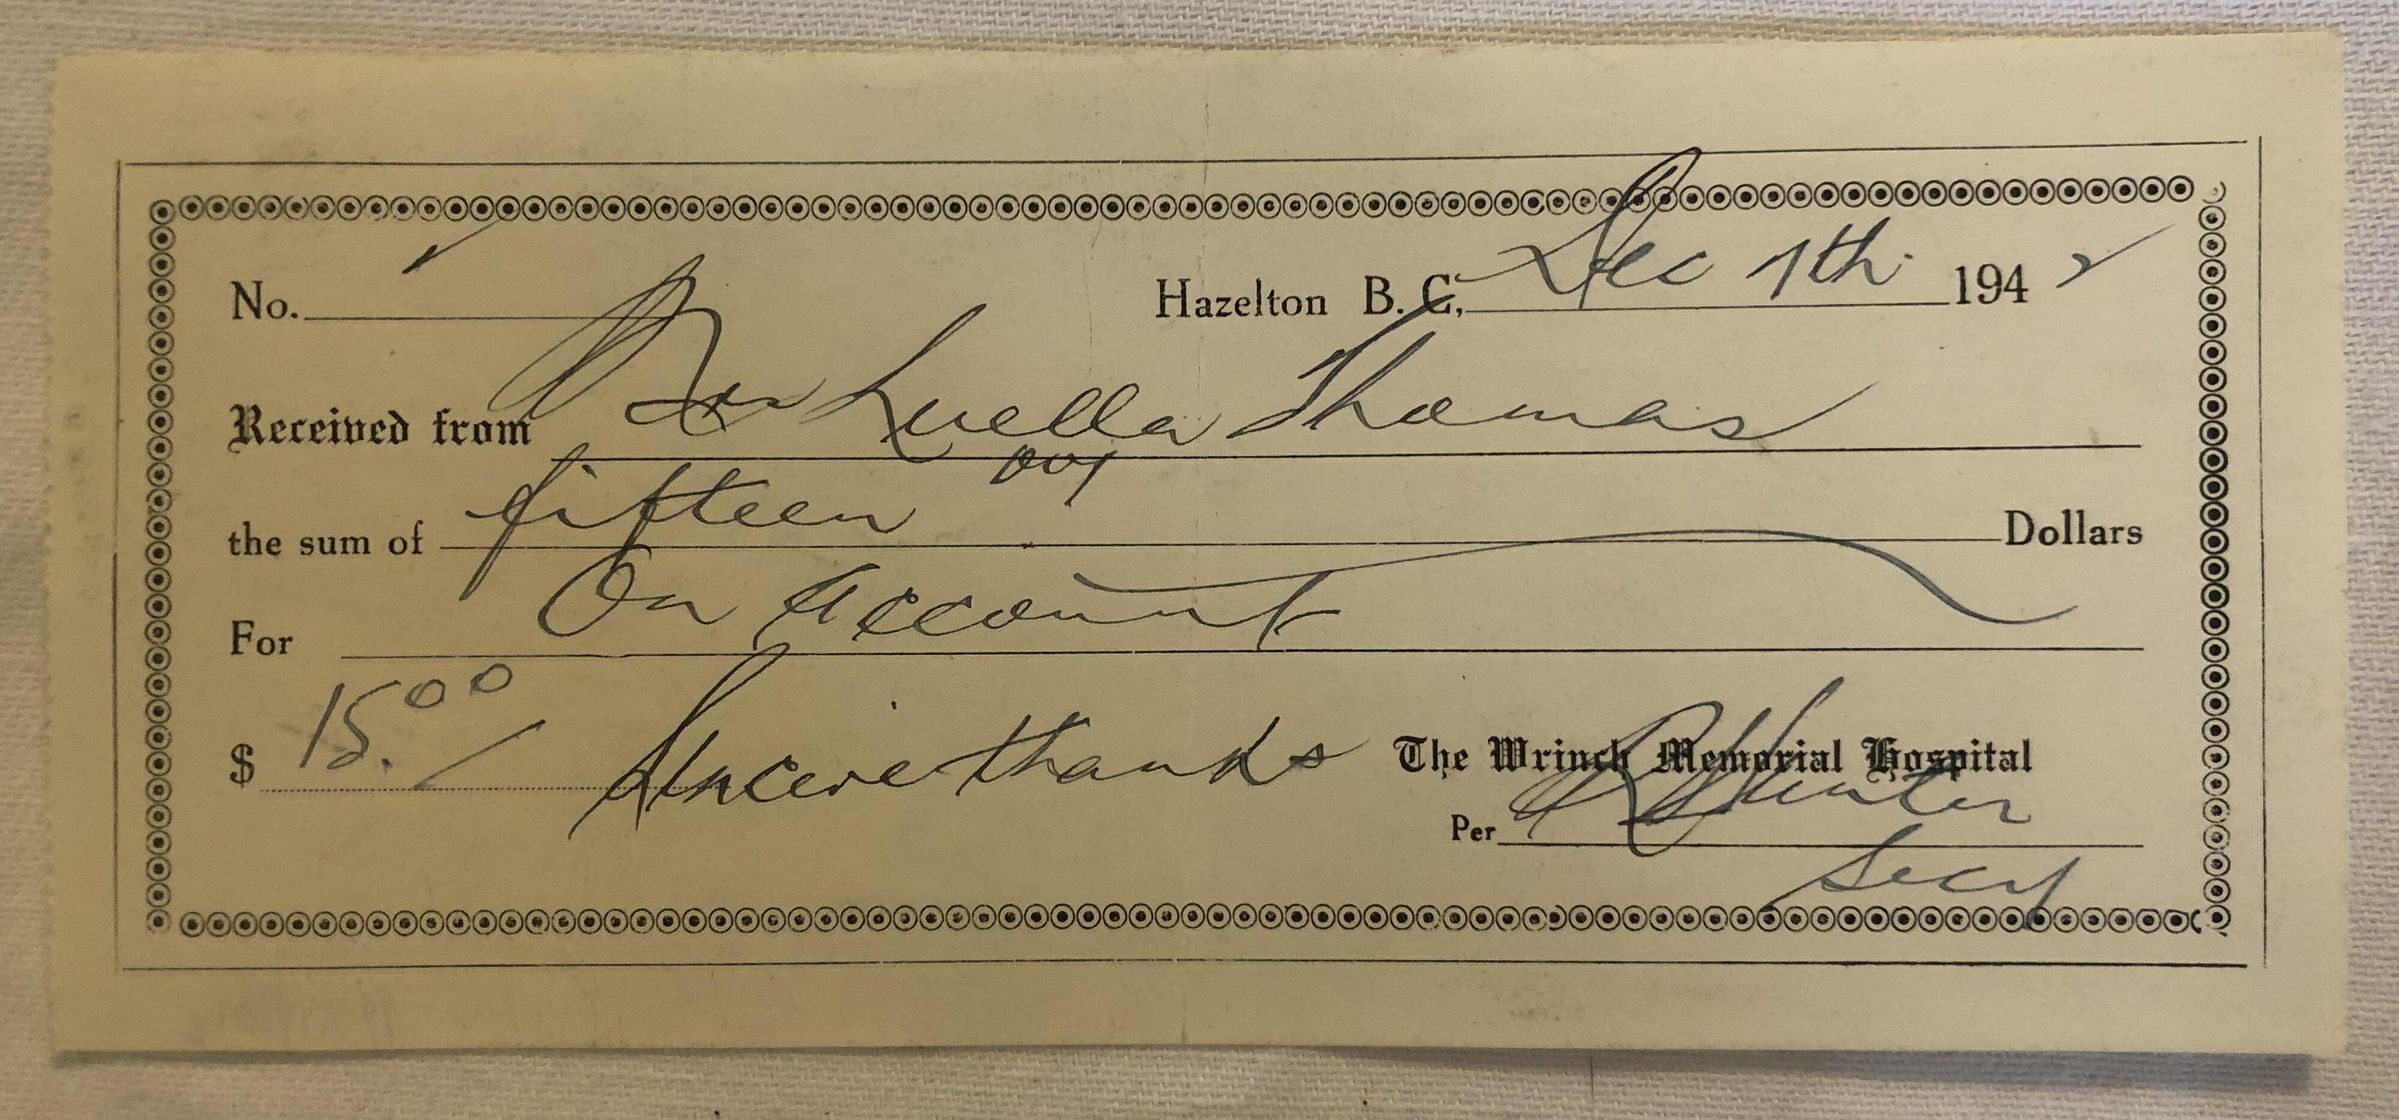 No. Hazelton B. C, Dec 7th. 1942
Received from Mrs Luella Thomas
the sum of fifteen 00/ Dollars
For On Account
$ 15.00/ Sincere thanks The Wrinch Memorial Hospital
Per Hunter
Secy